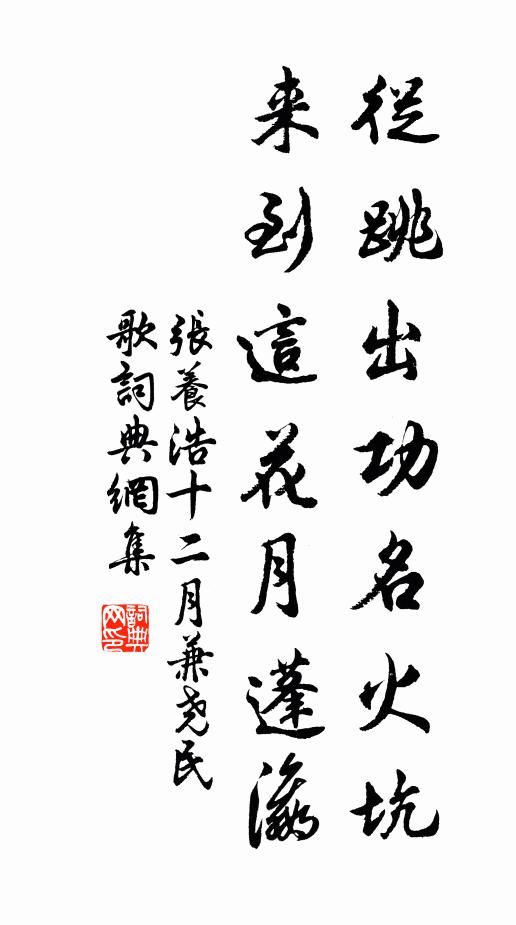 從跳出功名火坑
来到這花月蓬瀛
張養浩十二月兼尧民
歌詞典網集
詞典網印